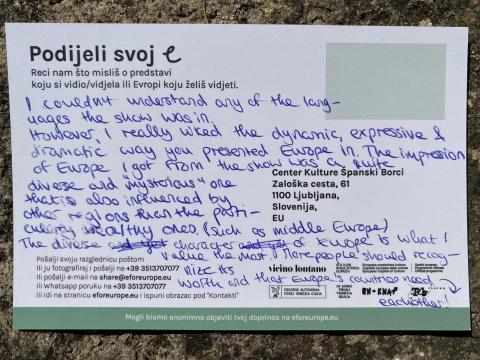 Podijeli svoj e
Reci nam što misliš o predstavi
koju si vidio/vidjela ili Evropi koju želiš vidjeti.
I couldn't understand any of the lang-
uages the show was in.
However, I really liked the dynamic, expressive &
dramatic way you presented Europe in. The impression
of Europe I got from the show was a quite
diverse and "mysterious" one
that is also influenced by
other regions than the parti-
culary wealthy ones. (such as middle Europe)
The diverse and yet character and yet of Europe is what I
value the most. More people should recog-
nize its
worth and that Europe's countries need
eachother!
Center Kulture Španski Borci
Zaloška cesta, 61
1100 Ljubljana,
Slovenija,
EU
Pošalji svoju razglednicu poštom
ili ju fotografiraj i pošalji na +39 3513707077
ili pošalji e-mail na share@eforeurope.eu
ili Whatsapp poruku na +39 3513707077
ili idi na stranicu eforeurope.eu i ispuni obrazac pod "Kontakti"
vicino lontano
REGIONE AUTONOMA
FRIULI VENEZIA GIULIA
IO SONO
FRIULI
VENEZIA
GIULIA
EN-KNAP
Mogli bismo anonimno objaviti tvoj doprinos na eforeurope.eu